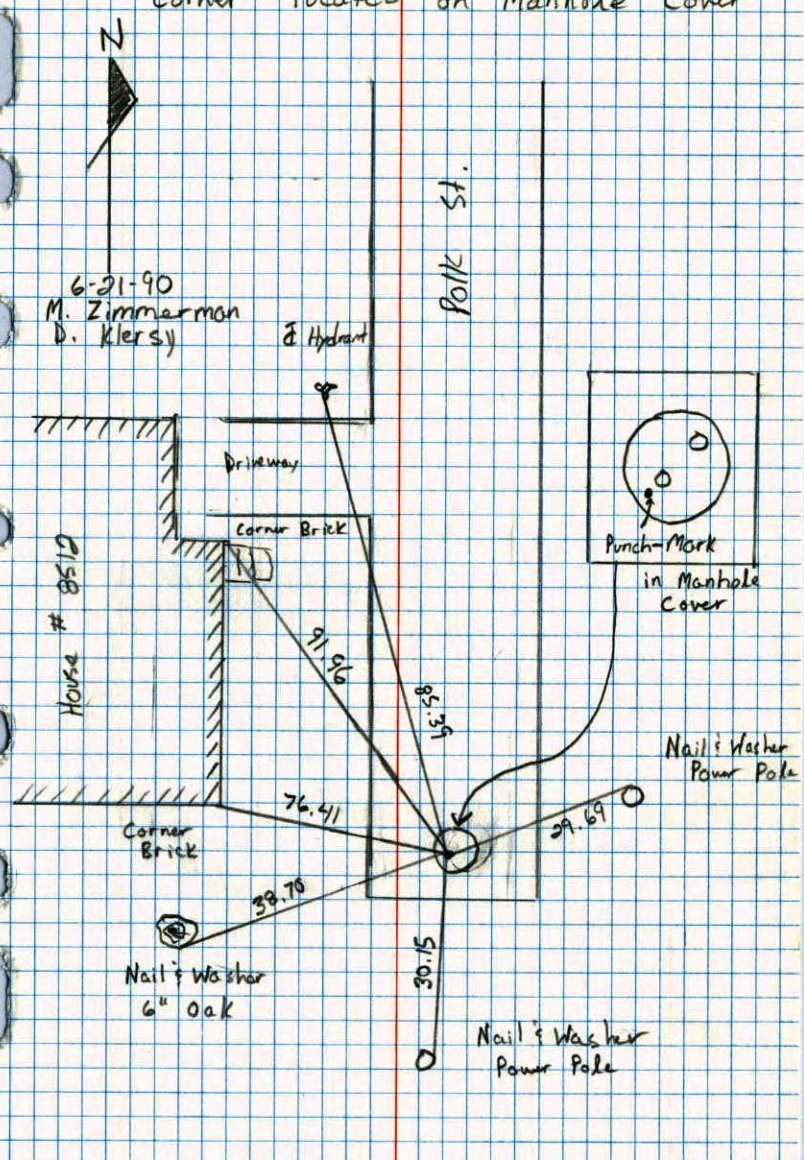 Corner located on Manhole Cover
N
6-21-90
M. Zimmerman
D. Klersy
Polk St.
Hydrant
Driveway
Corner Brick
House # 8512
91.96
85.39
Punch-Mark
in Manhole
Cover
Nail & Washer
Power Pole
29.69
76.41
Corner
Brick
38.70
Nail & Washer
6" Oak
30.15
Nail & Washer
Power Pole